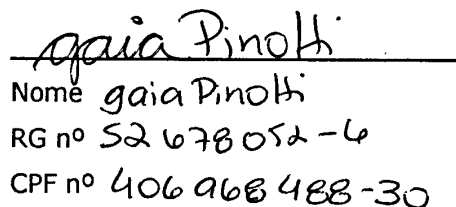 gaia Pinotti
Nome gaia Pinotti
RG nº 52 678 052-6
CPF nº 406 968 488-30